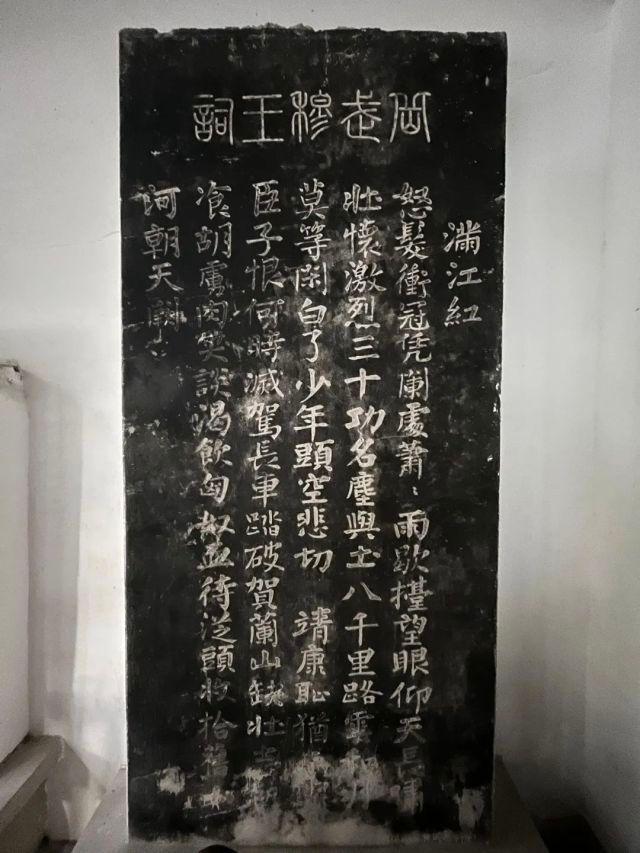 岳武穆王詞
滿江紅
怒髮衝冠凭闌處蕭〻雨歇擡望眼仰天長嘯
壯懷激烈三十功名塵與土八千里路雲和月
莫等閑白了少年頭空悲切 靖康恥猶
臣子恨何時滅駕長車踏破賀蘭山缺壯
飡胡虜肉笑談渴飲匈奴血待從頭收拾舊山
河朝天闕